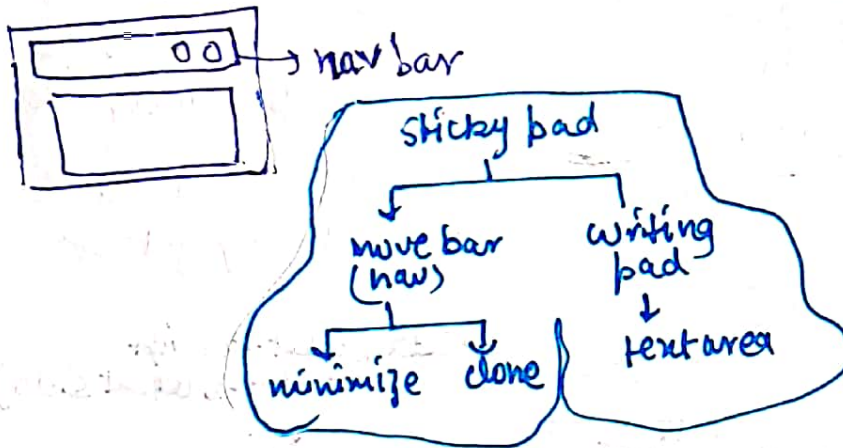 nav bar
sticky pad
move bar
(nav)
writing
pad
minimize
clone
textarea